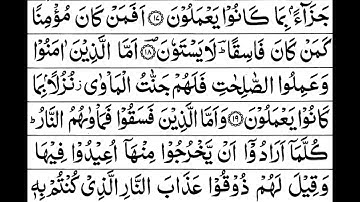 جَزَآءًۢ بِمَا كَانُوۡا يَعۡمَلُوۡنَ ﴿۱۷﴾ اَفَمَنۡ كَانَ مُؤۡمِنًا
كَمَنۡ كَانَ فَاسِقًا ؕ لَا يَسۡتَوٗنَ ﴿۱۸﴾ اَمَّا الَّذِيۡنَ اٰمَنُوۡا
وَعَمِلُوا الصّٰلِحٰتِ فَلَهُمۡ جَنّٰتُ الۡمَاۡوٰى ز نُزُلًاۢ بِمَا
كَانُوۡا يَعۡمَلُوۡنَ ﴿۱۹﴾ وَاَمَّا الَّذِيۡنَ فَسَقُوۡا فَمَاۡوٰٮهُمُ النَّارُ ؕ
كُلَّمَاۤ اَرَادُوۡۤا اَنۡ يَّخۡرُجُوۡا مِنۡهَاۤ اُعِيۡدُوۡا فِيۡهَا
وَقِيۡلَ لَهُمۡ ذُوۡقُوۡا عَذَابَ النَّارِ الَّذِىۡ كُنۡتُمۡ بِهٖ